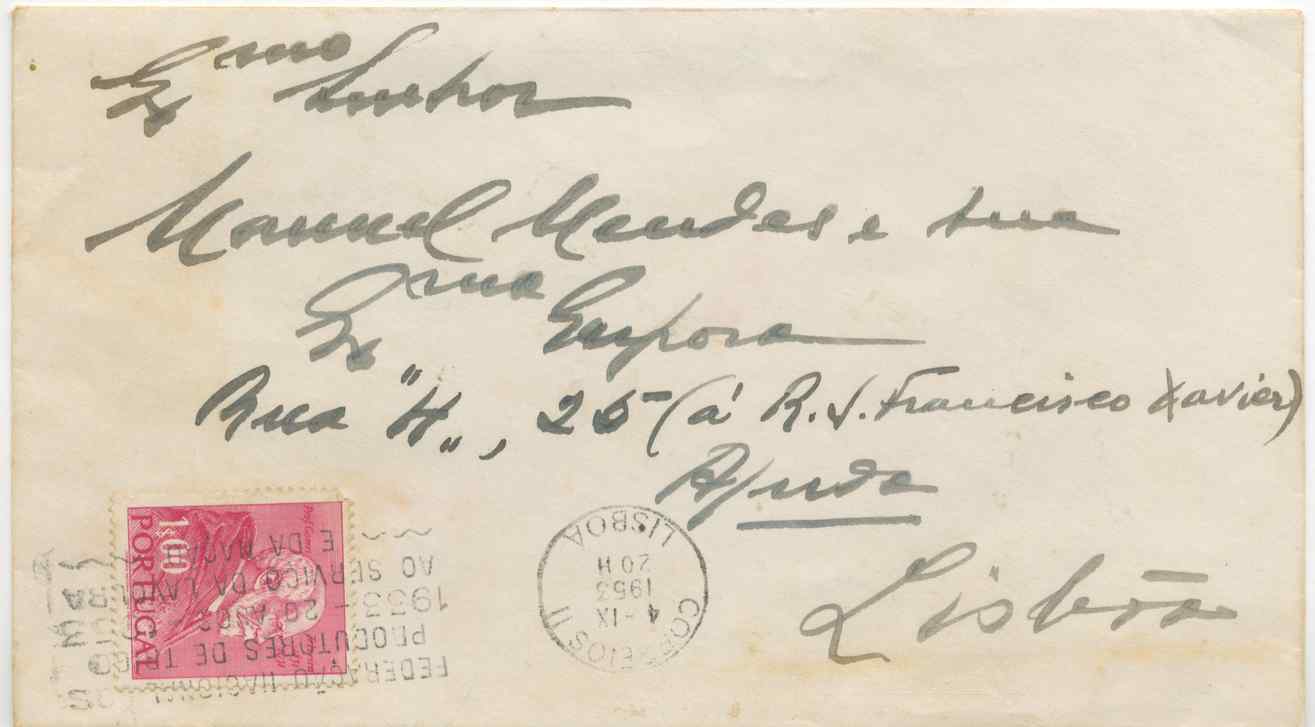 Exmo Senhor
Manuel Mendes e sua
Exma Esposa
Rua "H", 25 (á R. S. Francisco Xavier)
Ajuda
Lisboa
1$00
PORTUGAL
CORREIOS II
4-IX
1953
20 H
LISBOA
FEDERAÇÃO NACIONAL
PRODUTORES DE
1933 - 20 ANOS
AO SERVIÇO DA
E DA